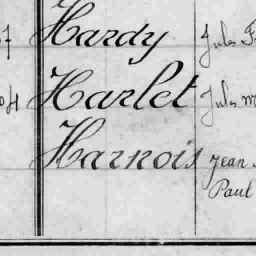 7 Hardy Jules F
04 Harlet Jules M
Harnois Jean
Paul